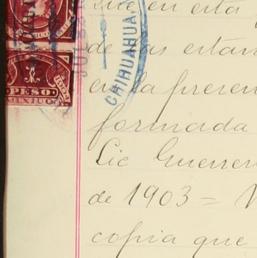 en esta
de las estam
en la presen
formada
Lic Guerrer
de 1903 = 
copia que
CHIHUAHUA
PESO